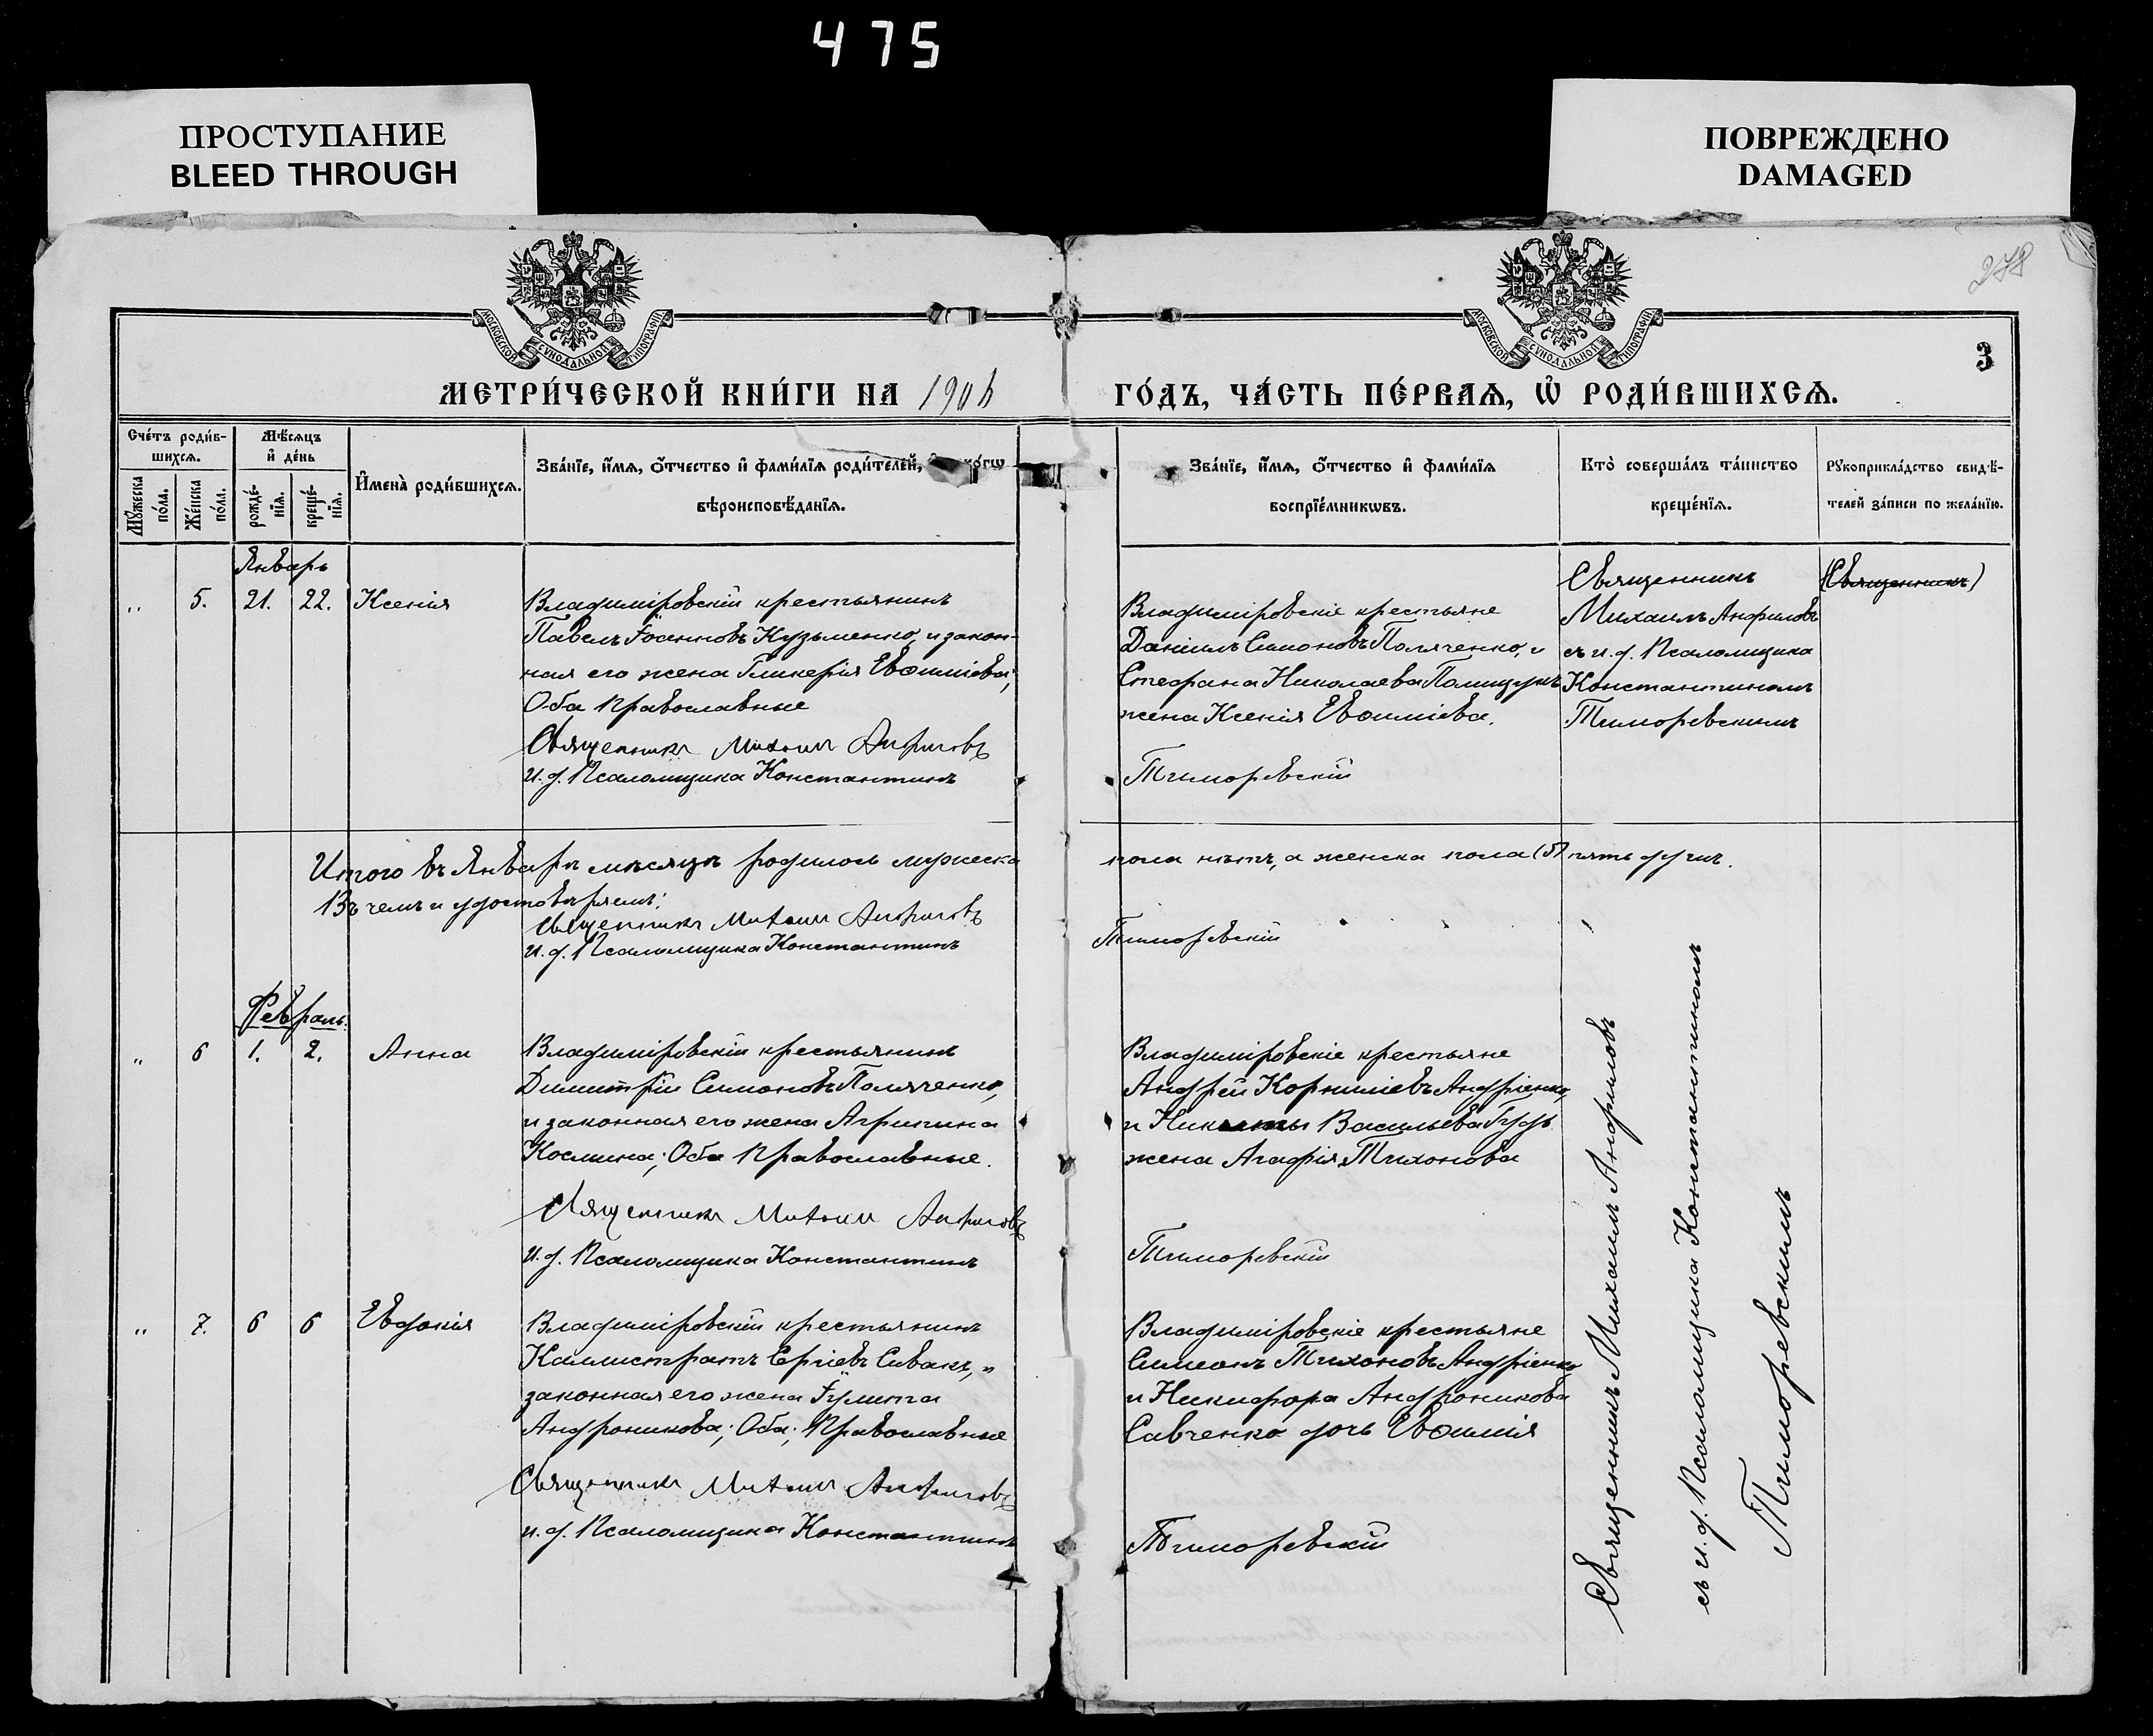 475
ПРОСТУПАНИЕ
BLEED THROUGH
ПОВРЕЖДЕНО
DAMAGED
278
МОСКОВСКОЙ СѴНОДАЛЬНОЙ ТИПОГРАФІИ
МОСКОВСКОЙ СѴНОДАЛЬНОЙ ТИПОГРАФІИ
3
МЕТРИ́ЧЕСКОЙ КНИ́ГИ НА 1906 ГО́ДЪ, ЧА́СТЬ ПЕ́РВАѦ, Ѽ РОДИ́ВШИХСѦ.
Сче́тъ роди́в-
шихсѧ.
Мѣ́сяцъ
и҆ де́нь
Мꙋ́жеска
по́ла.
Же́нска
по́ла.
рожде́-
нїѧ.
креще́-
нїѧ.
И҆мена̀ роди́вшихсѧ.
Зва́нїе, и҆́мѧ, о҆́тчество и҆ фами́лїѧ роди́телей,
вѣроисповѣ́данїѧ.
Зва́нїе, и҆́мѧ, о҆́тчество и҆ фами́лїѧ
воспрїе́мникѡвъ.
Кто̀ соверша́лъ та́инство
креще́нїѧ.
Рꙋкоприкла́дство свидѣ́-
телей за́писи по жела́нїю.
Январь
" 5. 21. 22. Ксенія
Владиміровскій крестьянинъ
Павелъ Іоанновъ Кузьменко, и закон-
ная его жена Гликерія Евѳиміева;
Оба Православные
Священникъ Михаилъ Анфиловъ
и. д. Псаломщика Константинъ
Владиміровскіе крестьяне
Даніилъ Симоновъ Поляченко, и
Стефана Николаева Полищукъ
жена Ксенія Евѳиміева.
Тиморевскій
Священникъ
Михаилъ Анфиловъ
съ и. д. Псаломщика
Константиномъ
Тиморевскимъ
(Священникъ)
Итого въ Январѣ мѣсяцѣ родилось мужеска пола нѣтъ, а женска пола (5) пять душъ.
Въ чемъ и удостовѣряемъ:
Священникъ Михаилъ Анфиловъ
и. д. Псаломщика Константинъ Тиморевскій
Февраль.
" 6 1. 2. Анна
Владиміровскій крестьянинъ
Димитрій Симоновъ Поляченко,
и законная его жена Агрипина
Космина; Оба Православные.
Священникъ Михаилъ Анфиловъ
и. д. Псаломщика Константинъ
Владиміровскіе крестьяне
Андрей Корниліевъ Андріенко,
и Никиты Васильева Гудь
жена Агафія Тихонова
Тиморевскій
" 7. 6 6 Евдокія
Владиміровскій крестьянинъ
Каллистратъ Сергіевъ Сивакъ, и
законная его жена Іулита
Андроникова; Оба; Православные
Священникъ Михаилъ Анфиловъ
и. д. Псаломщика Константинъ
Владиміровскіе крестьяне
Симеонъ Тихоновъ Андріенко
и Никифора Андроникова
Савченко дочь Евѳимія
Тиморевскій
Священникъ Михаилъ Анфиловъ
съ и. д. Псаломщика Константиномъ
Тиморевскимъ